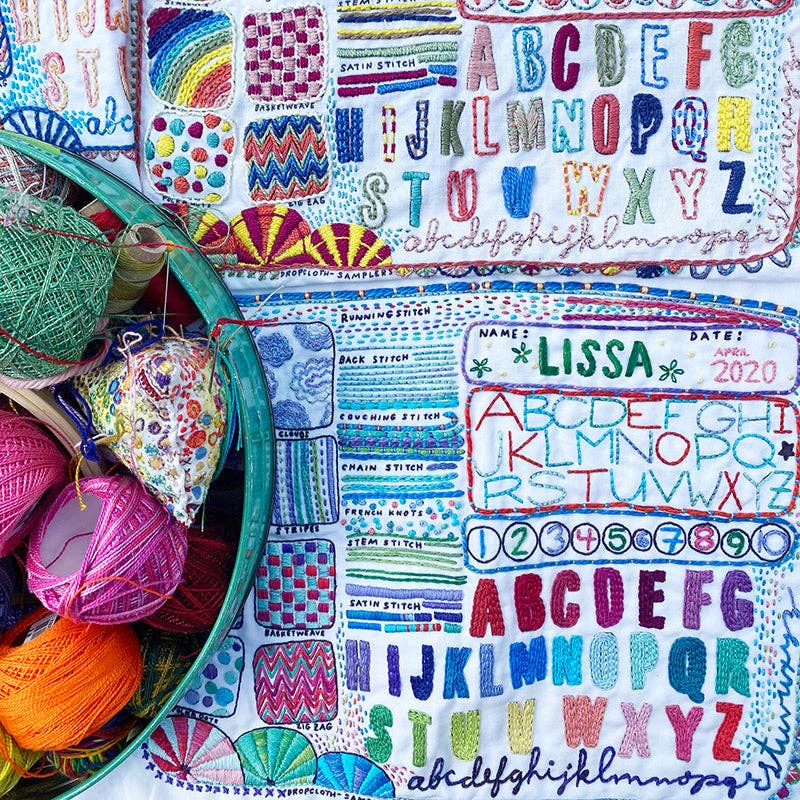 STEM STITCH
SATIN STITCH
BASKETWEAVE
ZIG ZAG
A B C D E F G
H I J K L M N O P Q R
S T U V W X Y Z
abcdefghijklmnopqrstuvwxyz
DROPCLOTH-SAMPLERS
abc
RUNNING STITCH
BACK STITCH
COUCHING STITCH
CHAIN STITCH
FRENCH KNOTS
STEM STITCH
SATIN STITCH
CLOUDS
STRIPES
BASKETWEAVE
ZIG ZAG
NAME: DATE:
LISSA APRIL
2020
ABCDEFGHI
JKLMNOPQ
RSTUVWXYZ
1 2 3 4 5 6 7 8 9 10
ABCDEFG
HIJKLMNOPQR
STUVWXYZ
abcdefghijklmnopqrstuvwxyz
DROPCLOTH SAMPLERS